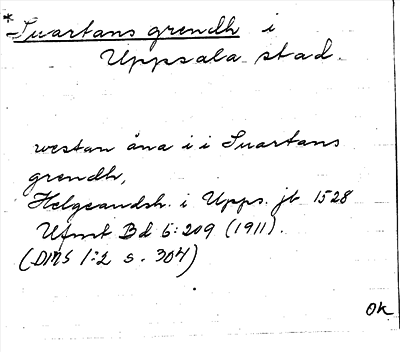 *Svartans grendh i
Uppsala stad.
westan åna i i Svartans
grendh,
Helgeandsh. i Upps. jb 1528
Ufmt Bd 6:209 (1911).
(DMS 1:2 s. 304)
Ok